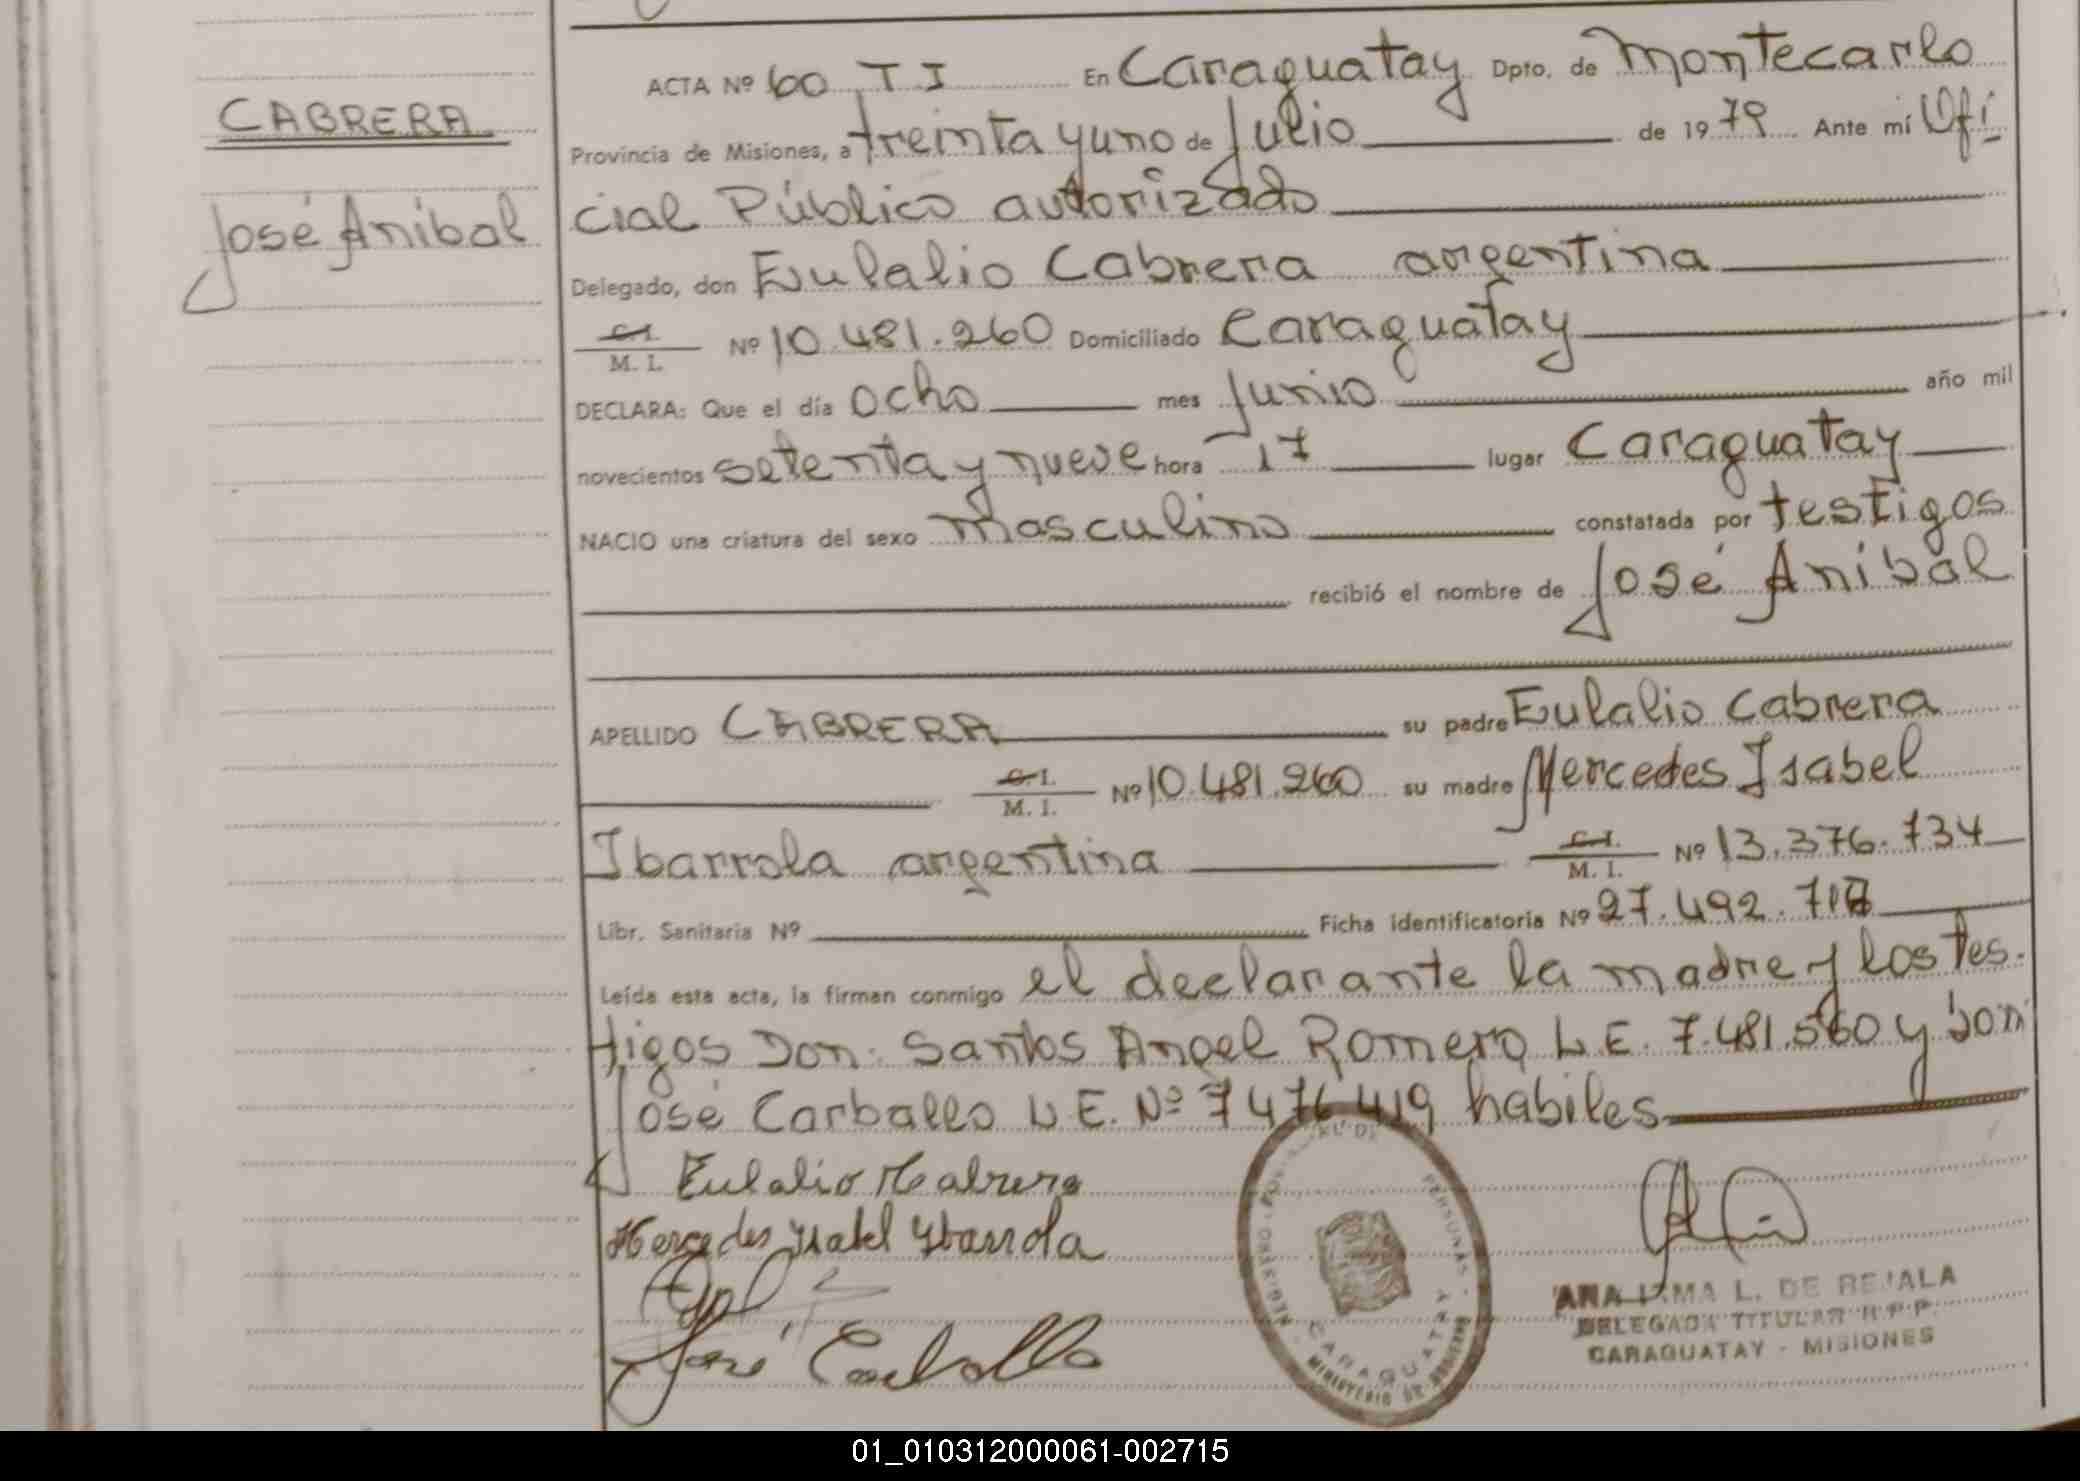 CABRERA
José Aníbal
ACTA Nº 60 T I En Caraguatay Dpto. de Montecarlo
Provincia de Misiones, a treinta y uno de Julio de 1979 Ante mí Ofi
cial Público autorizado
Delegado, don Eulalio Cabrera argentina
C.I. M. I. Nº 10.481.260 Domiciliado Caraguatay
DECLARA: Que el día ocho mes Junio año mil
novecientos setenta y nueve hora 17 lugar Caraguatay
NACIO una criatura del sexo masculino constatada por testigos
recibió el nombre de José Aníbal
APELLIDO CABRERA su padre Eulalio Cabrera
C.I. M. I. Nº 10.481.260 su madre Mercedes Isabel
Ibarrola argentina C.I. M. I. Nº 13.376.734
Libr. Sanitaria Nº Ficha identificatoria Nº 27.492.718
Leída esta acta, la firman conmigo el declarante la madre y los tes.
tigos Don: Santos Angel Romero L.E. 7.481.560 y Don
José Carballo L.E. Nº 7476419 habiles
Eulalio Cabrera
Mercedes Isabel Ybarrola
José Carballo
PERSONAS
CARAGUATAY
MINISTERIO DE GOBIERNO
ANA IRMA L. DE BEJALA
DELEGADA TITULAR R.P.P.
CARAGUATAY - MISIONES
01_010312000061-002715